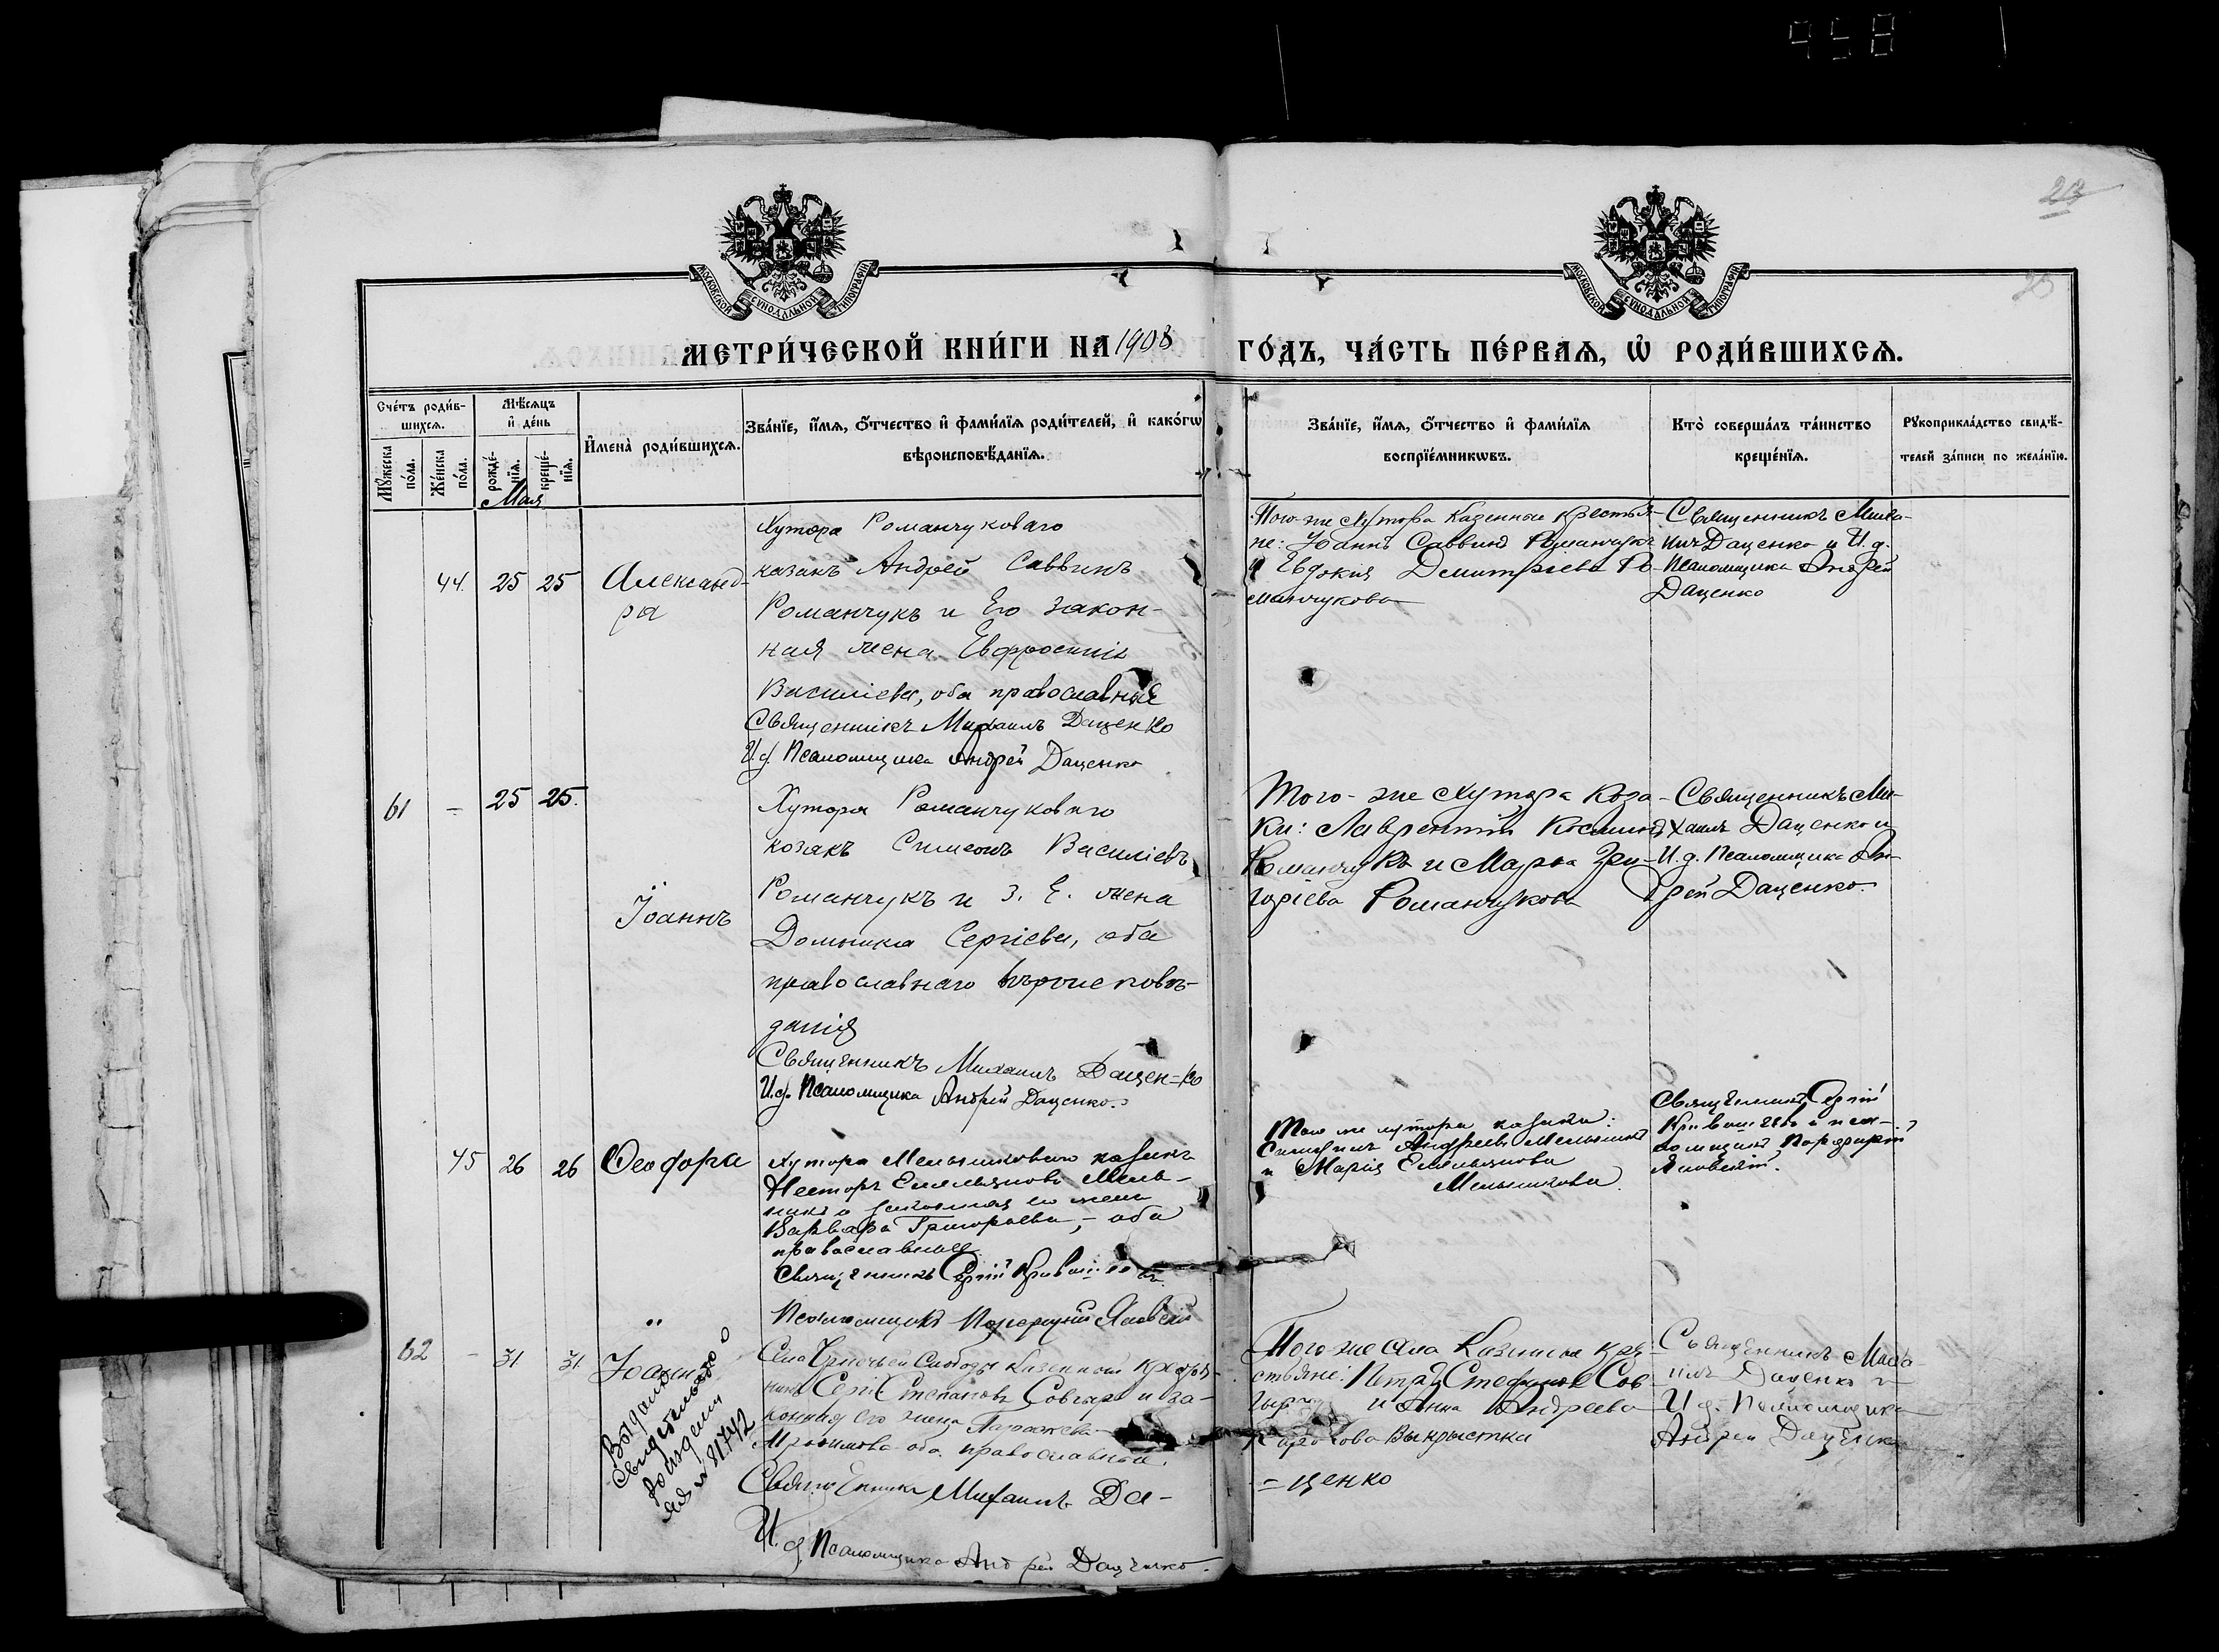 958
23
25
МОСКОВСКОЙ СѴНОДАЛЬНОЙ ТИПОГРАФІИ
МОСКОВСКОЙ СѴНОДАЛЬНОЙ ТИПОГРАФІИ
МЕТРИ́ЧЕСКОЙ КНИ́ГИ НА 1908 ГО́ДЪ, ЧА́СТЬ ПЕ́РВАЯ, Ѡ҆ РОДИ́ВШИХСЯ.
Сче́тъ роди́в-
шихся.
Мѹ́жеска
по́ла.
Же́нска
по́ла.
Мѣ́сяцъ
и҆ де́нь
рожде́-
нїя.
креще́-
нїя.
И҆мена̀ роди́вшихся.
Зва́нїе, и҆́мя, ѻ҆́тчество и҆ фами́лїя роди́телей, и҆ како́гѡ
вѣроисповѣ́данїя.
Зва́нїе, и҆́мя, ѻ҆́тчество и҆ фами́лїя
воспрїе́мникѡвъ.
Кто̀ соверша́лъ та́инство
креще́нїя.
Рѹкоприкла́дство свидѣ́-
телей за́писи по жела́нїю.
Мая
44. 25 25
Александ-
ра
Хутора Романчуковаго
казакъ Андрей Саввинъ
Романчукъ и Его закон-
ная жена Евфросинія
Василіева, оба православные
Священникъ Михаилъ Даценко
И.д. Псаломщика Андрей Даценко
Того-же Хутора Казенные крестья-
не: Іоаннъ Саввинъ Романчукъ
и Евдокія Димитріева Ро-
манчукова
Священникъ Миха-
илъ Даценко и И.д.
Псаломщика Андрей
Даценко
61 - 25 25.
Іоаннъ
Хутора Романчуковаго
козакъ Симеонъ Василіевъ
Романчукъ и З. Е. жена
Домника Сергіева, оба
православнаго вѣроисповѣ-
данія
Священникъ Михаилъ Дацен=ко
И.д. Псаломщика Андрей Даценко.
Того-же Хутора Коза-
ки: Лаврентій Косминъ
Романчукъ и Марѳа Гри-
горіева Романчукова
Священникъ Ми-
хаилъ Даценко и
И.д. Псаломщика Ан-
дрей Даценко.
45 26 26 Ѳеодора
Хутора Мельниковаго казакъ
Несторъ Емельяновъ Мель-
никъ и законная его жена
Варвара Григорьева, - оба
православные.
Священникъ Сергій
Псаломщикъ Порфирій
Того же хутора казаки:
Андреевъ Мельникъ
и Марія Емельянова
Мельникова.
Священникъ Сергій
и пса-
ломщикъ Порфирій
62 - 31 31 Іоаннъ
Выдано
свидѣтельство о
рожденіи
№ 742
Села Слободы Казенный крестья-
нинъ Сергій Степановъ и за-
конная его жена Параскева
оба православные.
Священникъ Михаилъ Да-
=ценко
И.д. Псаломщика Андрей Даценко.
Того же села Казенные кре-
стьяне: Петръ Стефановъ Сов-
и Анна Андреева
Священникъ Миха-
илъ Даценко и
И.д. Псаломщика
Андрей Даценко